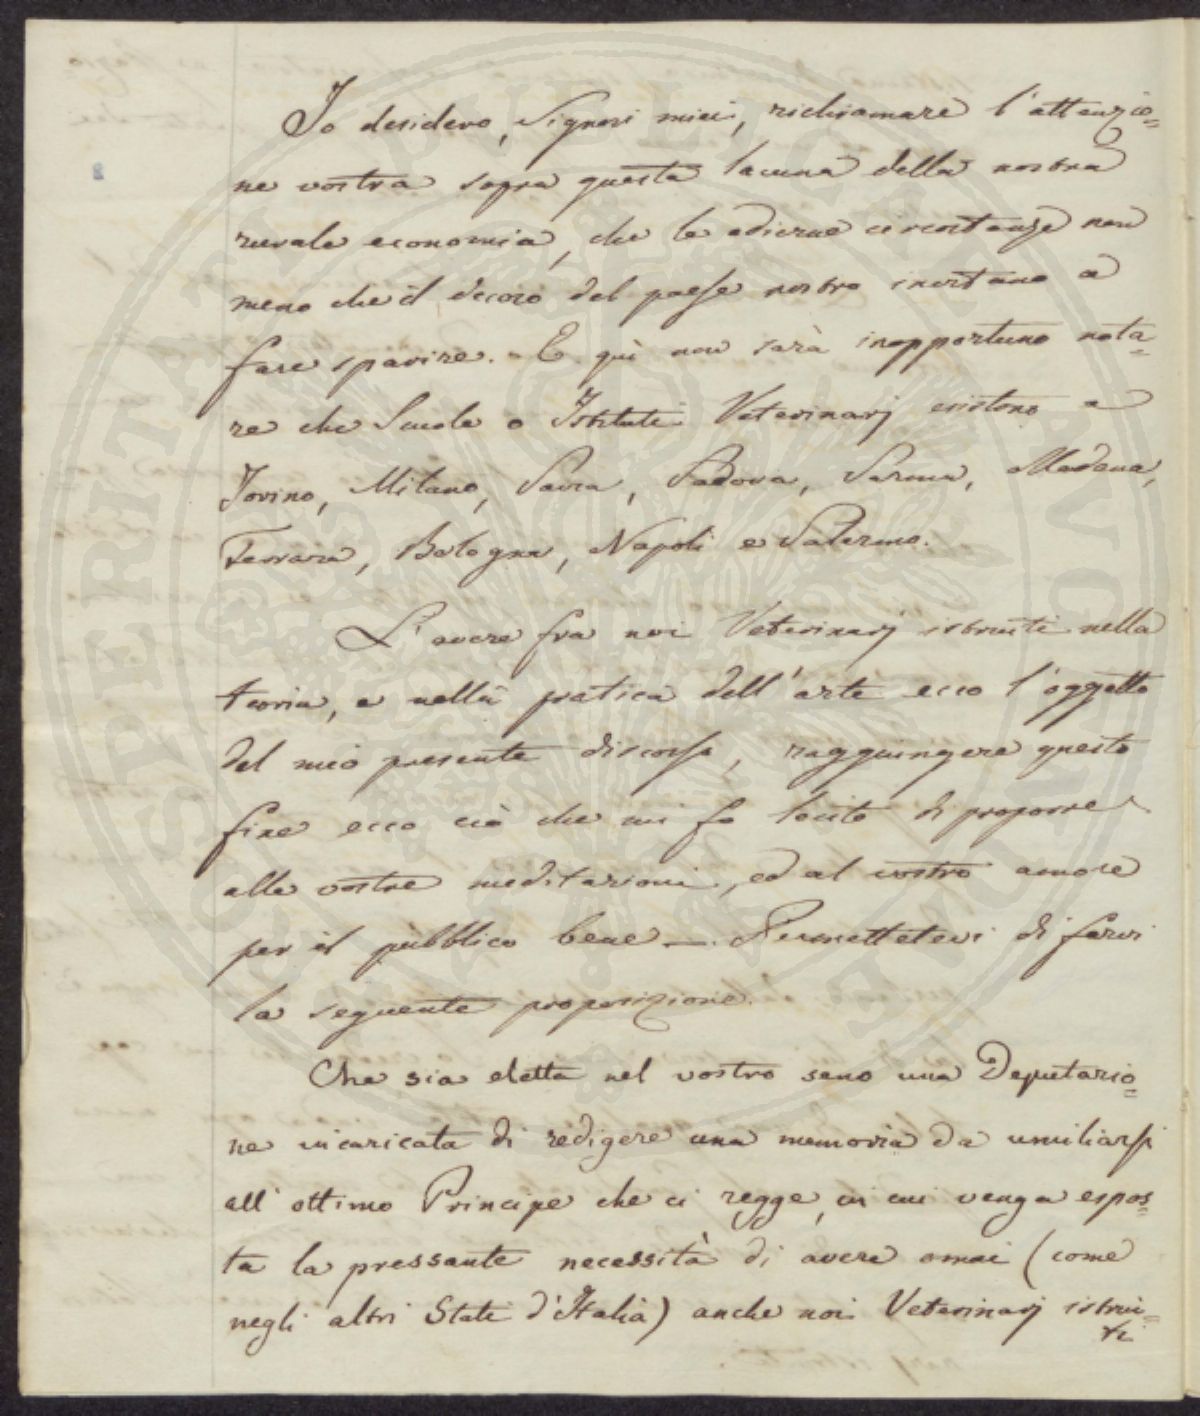 Io desidero, Signori miei, richiamare l'attenzio=
ne vostra sopra questa lacuna della nostra
rurale economia, che le odierne circostanze non
meno che il decoro del paese nostro incitano a
fare sparire. E quì non sarà inopportuno nota=
re che Scuole o Istituti Veterinarj esistono a
Torino, Milano, Pavia, Padova, Parma, Modena,
Ferrara, Bologna, Napoli e Palermo.
L'avere fra noi Veterinarj istruiti nella
teoria, e nella pratica dell'arte ecco l'oggetto
del mio presente discorso, raggiungere questo
fine ecco ciò che mi fo lecito di proporre
alle vostre meditazioni, ed al vostro amore
per il pubblico bene —. Permettetevi di farvi
la seguente proposizione.
Che sia eletta nel vostro seno una Deputazio=
ne incaricata di redigere una memoria da umiliarsi
all'ottimo Principe che ci regge, in cui venga espos=
ta la pressante necessità di avere omai (come
negli altri Stati d'Italia) anche noi Veterinarj istrui=
ti